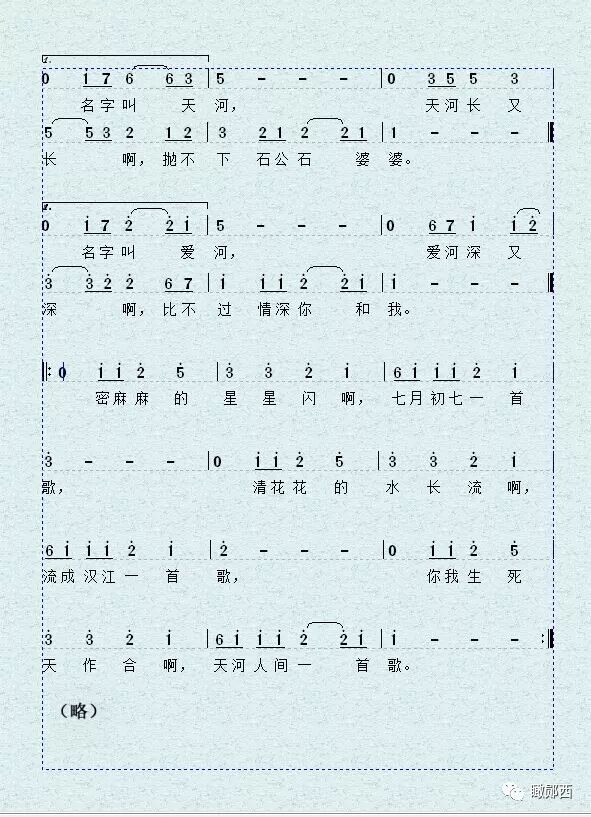 1.
0 i 7 6 6 3 | 5 - - - | 0 3 5 5 3
名字叫 天 河， 天河长又
5 5 3 2 1 2 | 3 2 1 2 2 1 | 1 - - -
长 啊，抛不 下 石公石 婆 婆。
2.
0 i 7 2 2 i | 5 - - - | 0 6 7 i i 2
名字叫 爱 河， 爱河深又
3 3 2 2 6 7 | i i i 2 2 i | i - - -
深 啊，比不 过 情深你 和 我。
0 i i 2 5 | 3 3 2 i | 6 i i i 2 i
密麻麻 的 星 星 闪 啊， 七月初七一 首
3 - - - | 0 i i 2 5 | 3 3 2 i
歌， 清花花 的 水 长 流 啊，
6 i i i 2 i | 2 - - - | 0 i i 2 5
流成汉江一 首 歌， 你我生 死
3 3 2 i | 6 i i i 2 2 i | i - - - :
天 作 合 啊， 天河人间一 首 歌。
（略）
瞰郧西